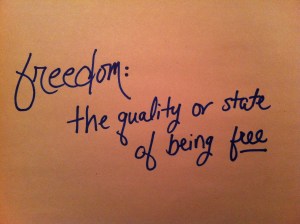 freedom:
the quality or state
of being free